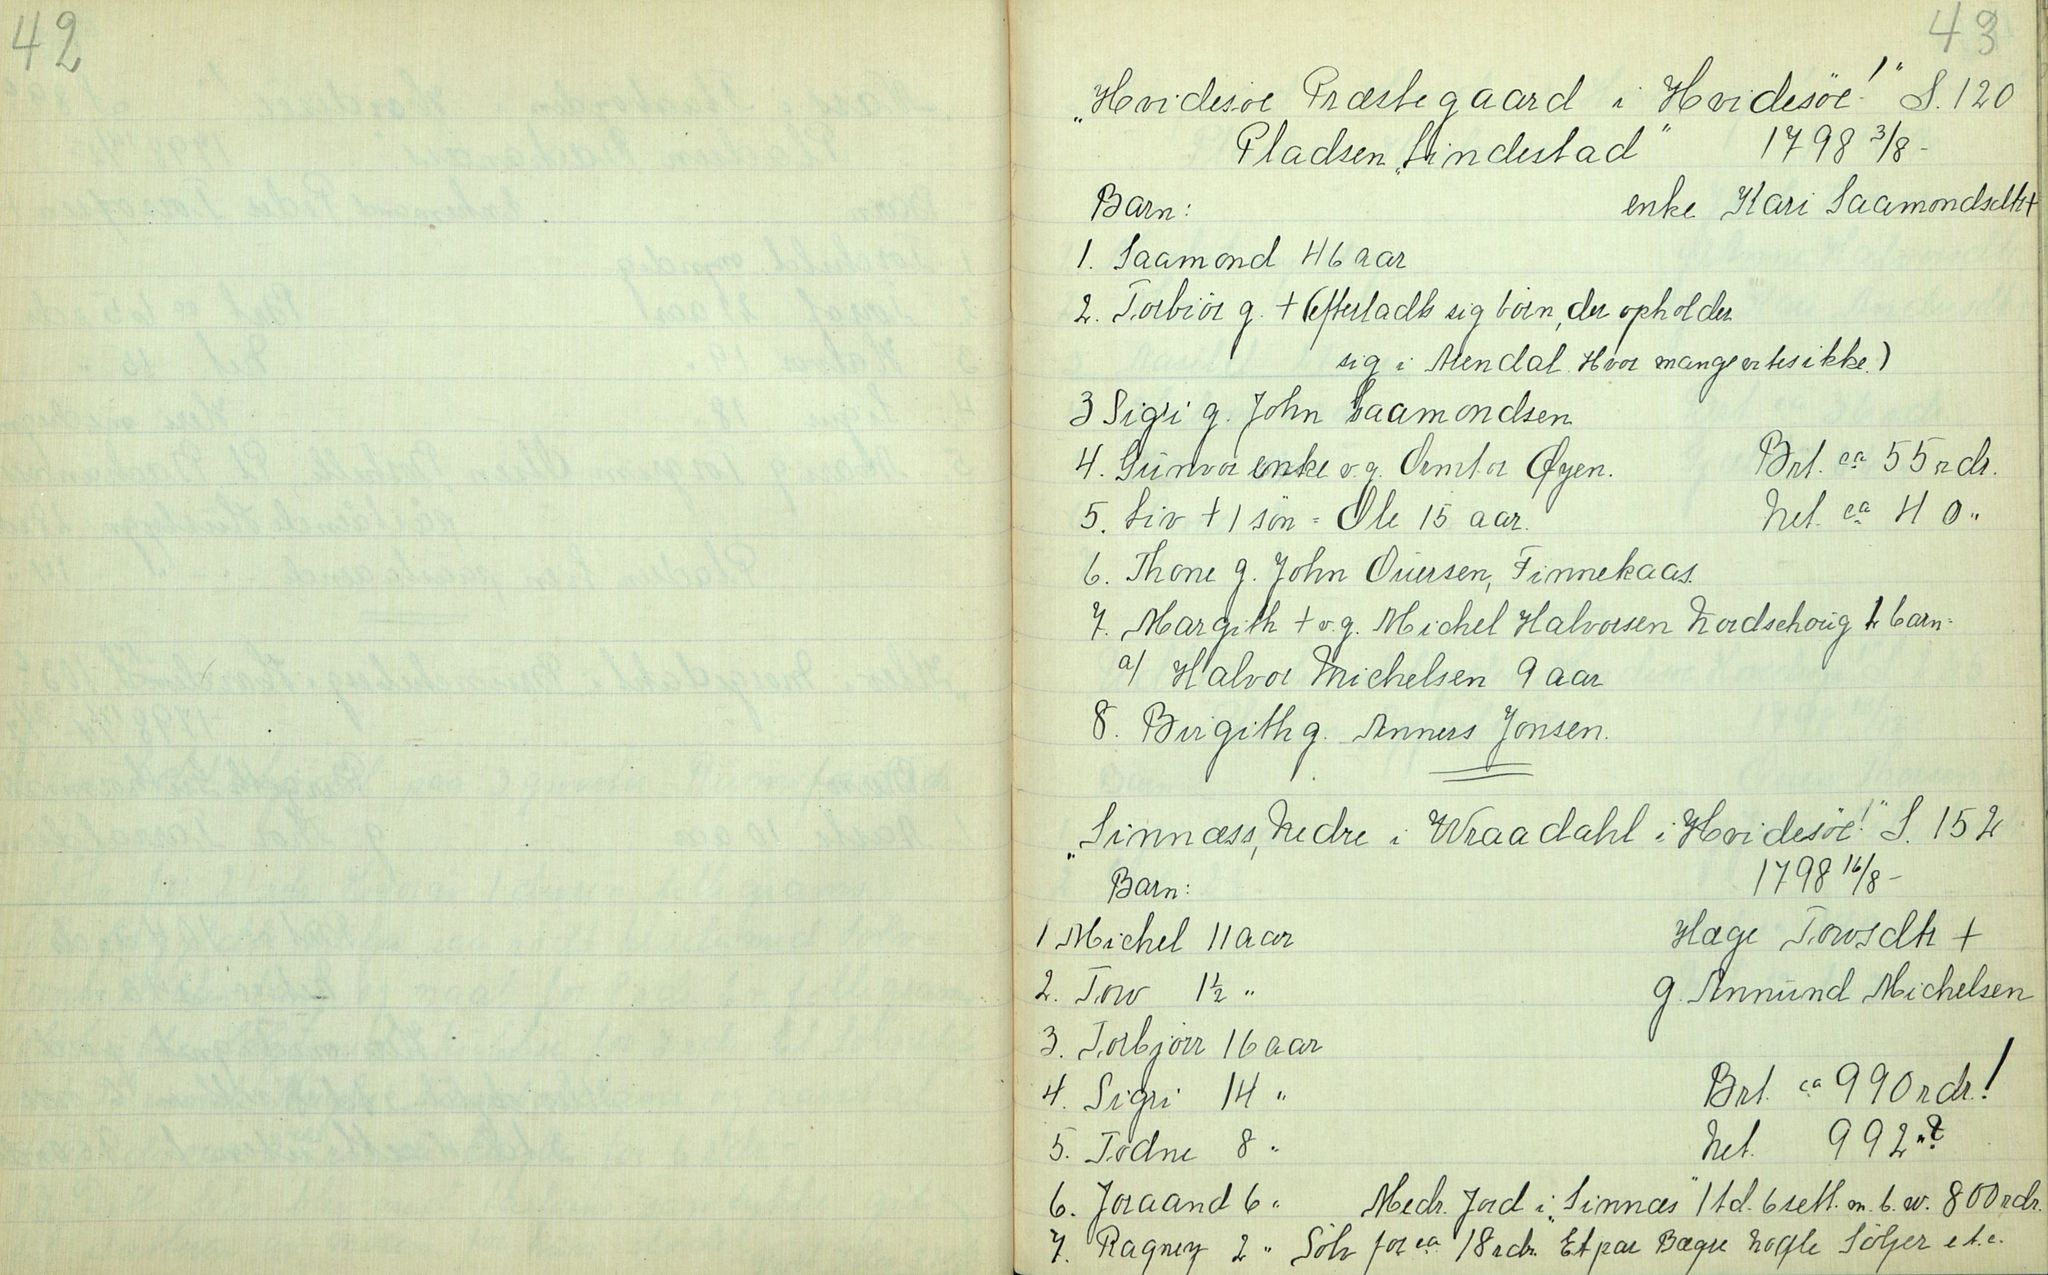 42
43
"Hvidesøe Præstegaard i Hvidesöe!" S. 120
Pladsen "Lindestad" 1798 3/8-
Barn: enke Kari Saamondsdtr +
1. Saamond 46 aar
2. Torbiör g. + (efterladt sig börn, der opholder
sig i Arendal. Hvor mange vites ikke.)
3 Sigri g. John Saamondsen
4. Gunvor enke v. g. Øyen. Brt. ca 55 rdr.
5. Liv + 1 sön = Ole 15 aar. Net. ca 40 "
6. Thone g. John Oversen, Finnekaas.
7. Margith + v. g. Michel Halvorsen Nordschoug 1 barn=
a/ Halvor Michelsen 9 aar
8. Birgith g. Anners Jonsen.
"Sinnæss, Nedre i Wraadahl i Hvidesöe!" S. 152
Barn: 1798 16/8-
1 Michel 11 aar Hæge Tovsdtr +
2. Tov 1½ " g. Annund Michelsen
3. Torbjörr 16 aar
4. Sigri 14 " Brt. ca 990 rdr!
5. Todne 8 " Net. 992 "?
6. Joraand 6 " Medr. Jord i "Sinnæs" 1 td. 6 sett. m. b. w. 800 rdr.
7. Ragney 2 " Sölv for ca 18 rdr. Et par Bægre Nogle Söljer etc.